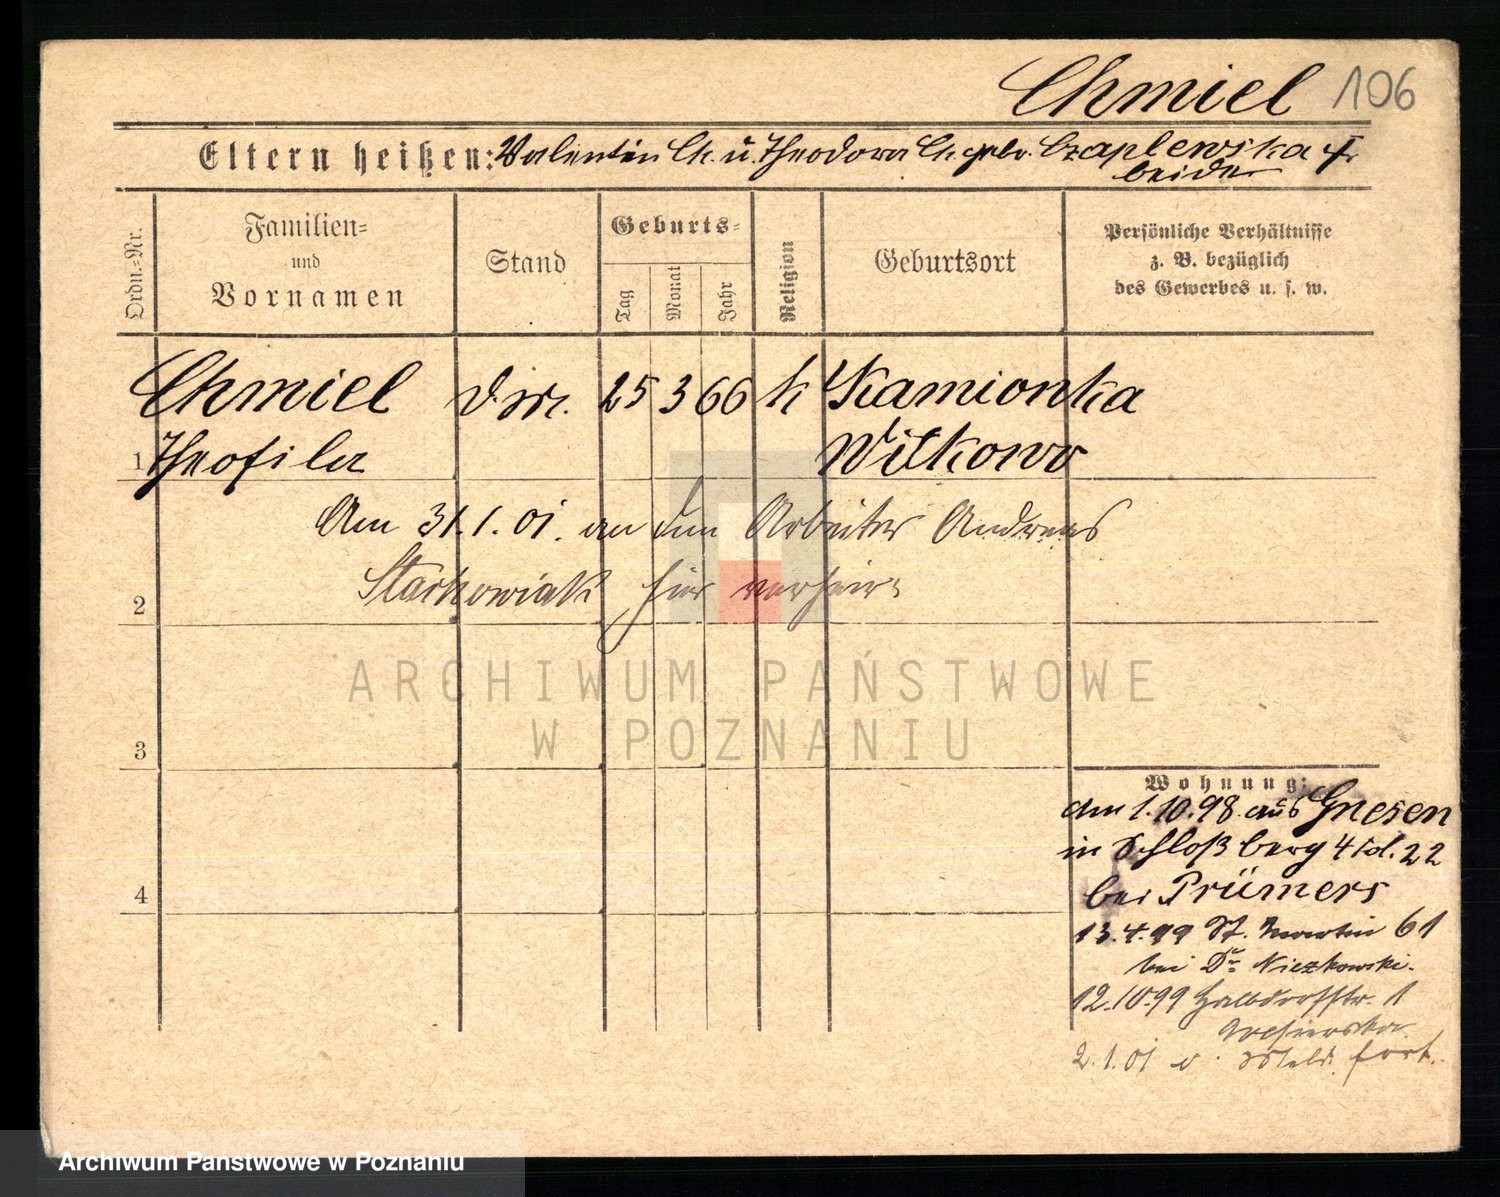 Chmiel 106
Eltern heißen: Valentin Ch. u. Theodora Ch. gebr. Czaplewska
beide
Ordn.-Nr.
Familien- und Vornamen
Stand
Geburts-
Tag
Monat
Jahr
Religion
Geburtsort
Persönliche Verhältnisse
z. B. bezüglich
des Gewerbes u. s. w.
Chmiel 25 3 66 k Kamionka
1 Theofila Witkowo
Am 31.1.01. an den Arbeiter Andreas
2 Stachowiak hier verheir.
ARCHIWUM PAŃSTWOWE
W POZNANIU
3
4
Wohnung:
am 1.10.98. aus Gnesen
in Schloßberg 4 22
bei Prümers
13.4.99 St. Martin 61
bei Dr. Niezkowski.
12.10.99 Halbdorfstr. 1
2.1.01 fort.
Archiwum Państwowe w Poznaniu